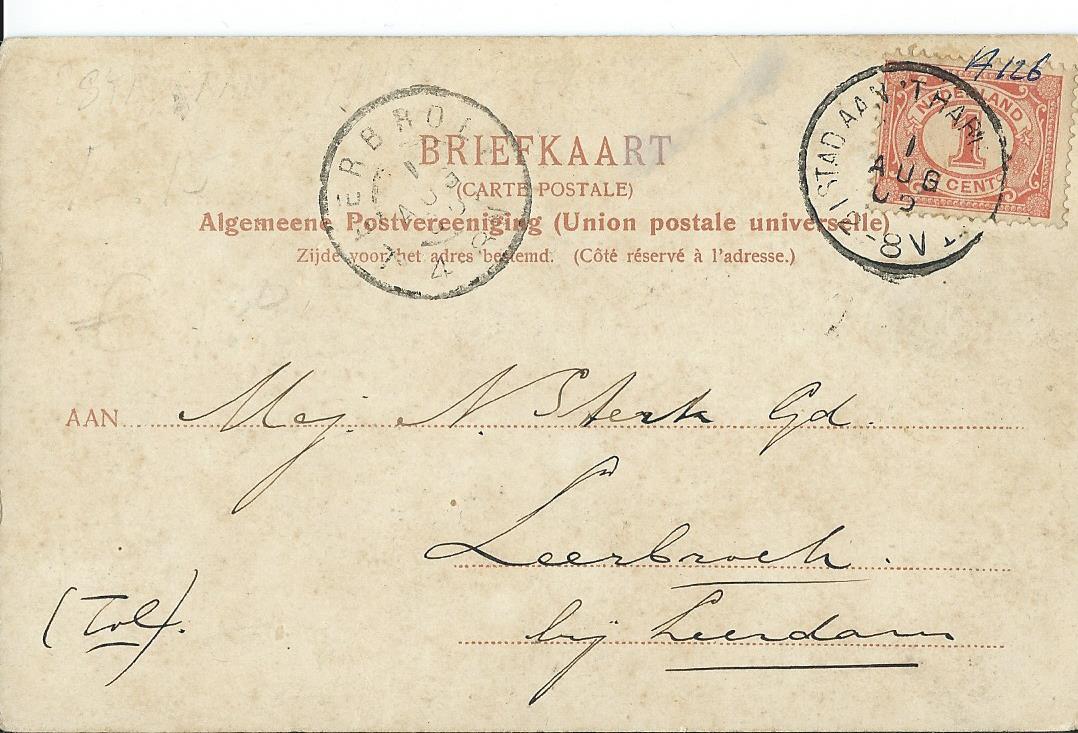 A 126
NEDERLAND
1
CENT
STAD AAN 'T HAR
1
AUG
-8V
ERBRO
1
AUG
4
BRIEFKAART
(CARTE POSTALE)
Algemeene Postvereeniging (Union postale universelle)
Zijde voor het adres bestemd. (Côté réservé à l'adresse.)
AAN Mej. N. Sterk Gd.
Leerbroek.
(Tol).
bij Leerdam